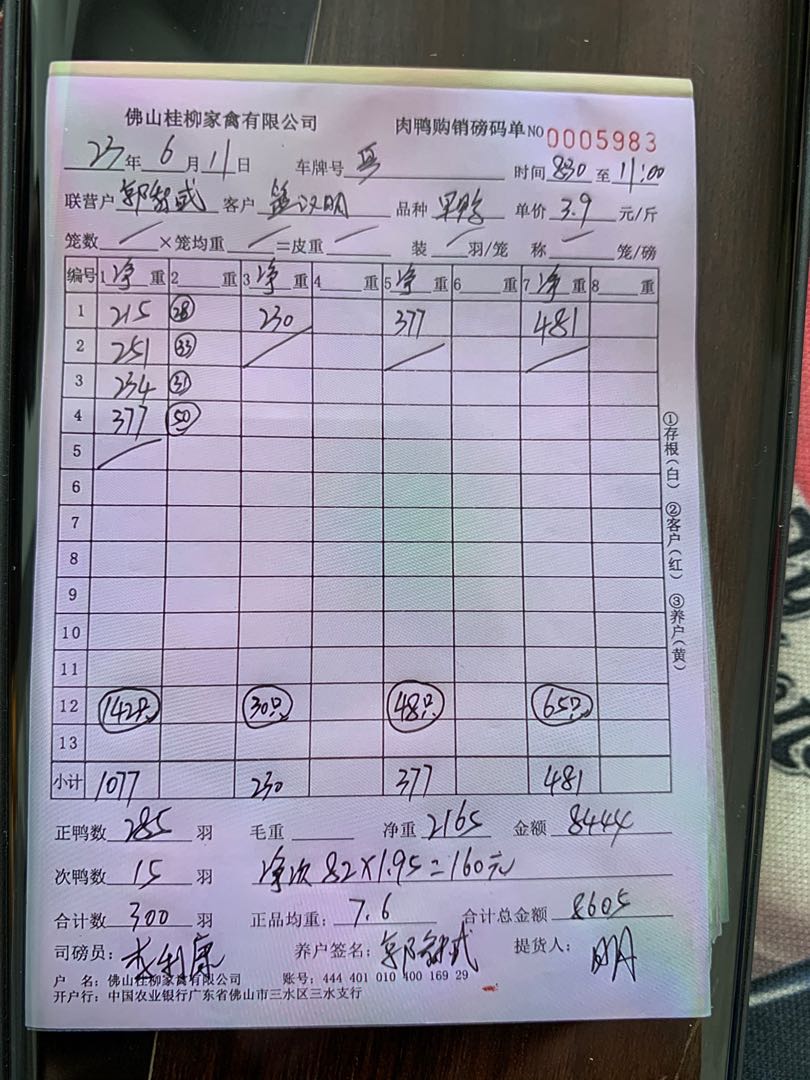 佛山桂柳家禽有限公司 肉鸭购销磅码单 NO 0005983
23年6月11日 车牌号 时间 830 至 11:00
联营户 郭智武 客户 汉明 品种 单价 3.9 元/斤
笼数 ×笼均重 =皮重 装 羽/笼 称 笼/磅
编号 1净重 2 重 3净重 4 重 5净重 6 重 7净重 8 重
1 215 28 230 377 481
2 251 33
3 234 31
4 377 50
5
6
7
8
9
10
11
12 142只 30只 48只 65只
13
小计 1077 230 377 481
正鸭数 285 羽 毛重 净重 2165 金额 8444
次鸭数 15 羽 净次 82×1.95=160元
合计数 300 羽 正品均重: 7.6 合计总金额 8605
司磅员: 李利康 养户签名: 郭智武 提货人: 明
户 名: 佛山桂柳家禽有限公司 账号: 444 401 010 400 169 29
开户行: 中国农业银行广东省佛山市三水区三水支行
①存根(白) ②客户(红) ③养户(黄)